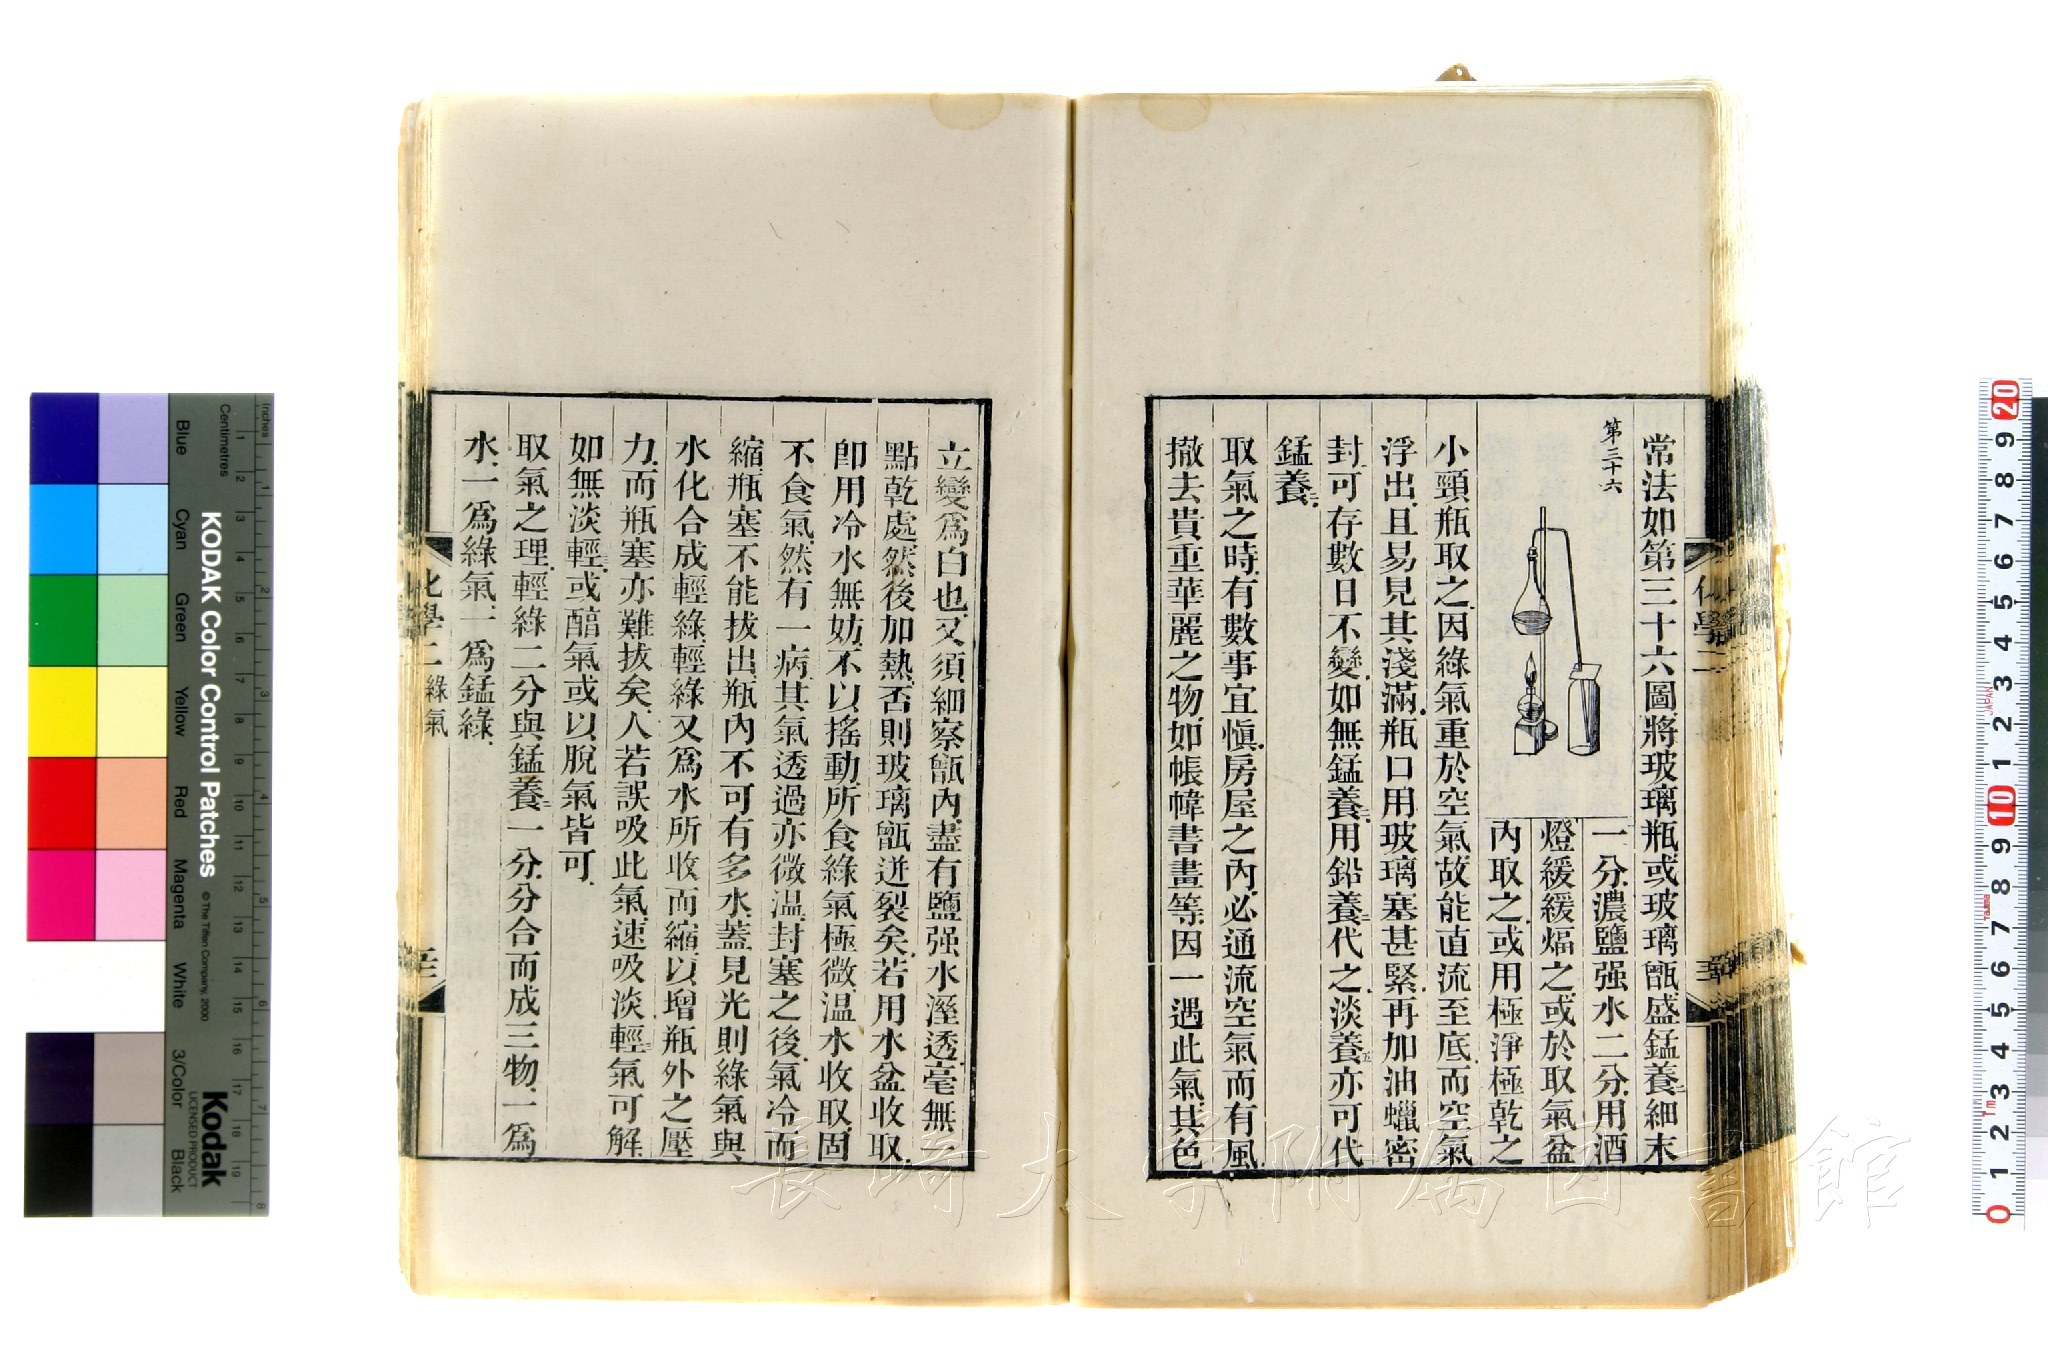 常法如第三十六圖將玻璃瓶或玻璃甑盛錳養二細末
第三十六
一分濃鹽强水二分用酒
燈緩緩煏之或於取氣盆
內取之或用極淨極乾之
小頸瓶取之因綠氣重於空氣故能直流至底而空氣
浮出且易見其淺滿瓶口用玻璃塞甚緊再加油蠟密
封可存數日不變如無錳養二用鉛養二代之淡養五亦可代
錳養二
取氣之時有數事宜愼房屋之內必通流空氣而有風
撤去貴重華麗之物如帳幃書畫等因一遇此氣其色
立變爲白也又須細察甑內盡有鹽强水溼透毫無一
點乾處然後加熱否則玻璃甑迸裂矣若用水盆收取
卽用冷水無妨不以搖動所食綠氣極微温水收取固
不食氣然有一病其氣透過亦微温封塞之後氣冷而
縮瓶塞不能拔出瓶內不可有多水蓋見光則綠氣與
水化合成輕綠輕綠又爲水所收而縮以增瓶外之壓
力而瓶塞亦難拔矣人若誤吸此氣速吸淡輕三氣可解
如無淡輕三或醕氣或以脫氣皆可
取氣之理輕綠二分與錳養二一分分合而成三物一爲
水一爲綠氣一爲錳綠
化學二 綠氣
KODAK Color Control Patches
© The Tiffen Company, 2000
Kodak
LICENSED PRODUCT
Inches
Centimetres
Blue
Cyan
Green
Yellow
Red
Magenta
White
3/Color
Black
長崎大学附属図書館
JAPAN